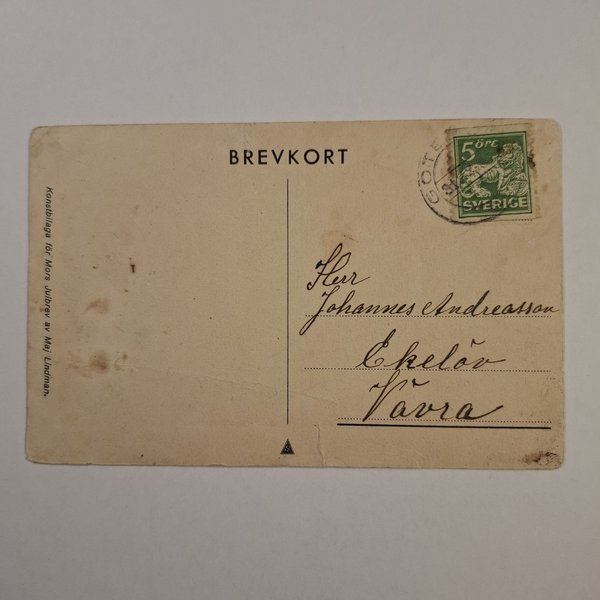 BREVKORT
5 ÖRE
SVERIGE
GÖTE
Herr
Johannes Andreasson
Ekelöv
Vävra
Konstbilaga för Mors Julbrev av Maj Lindman.